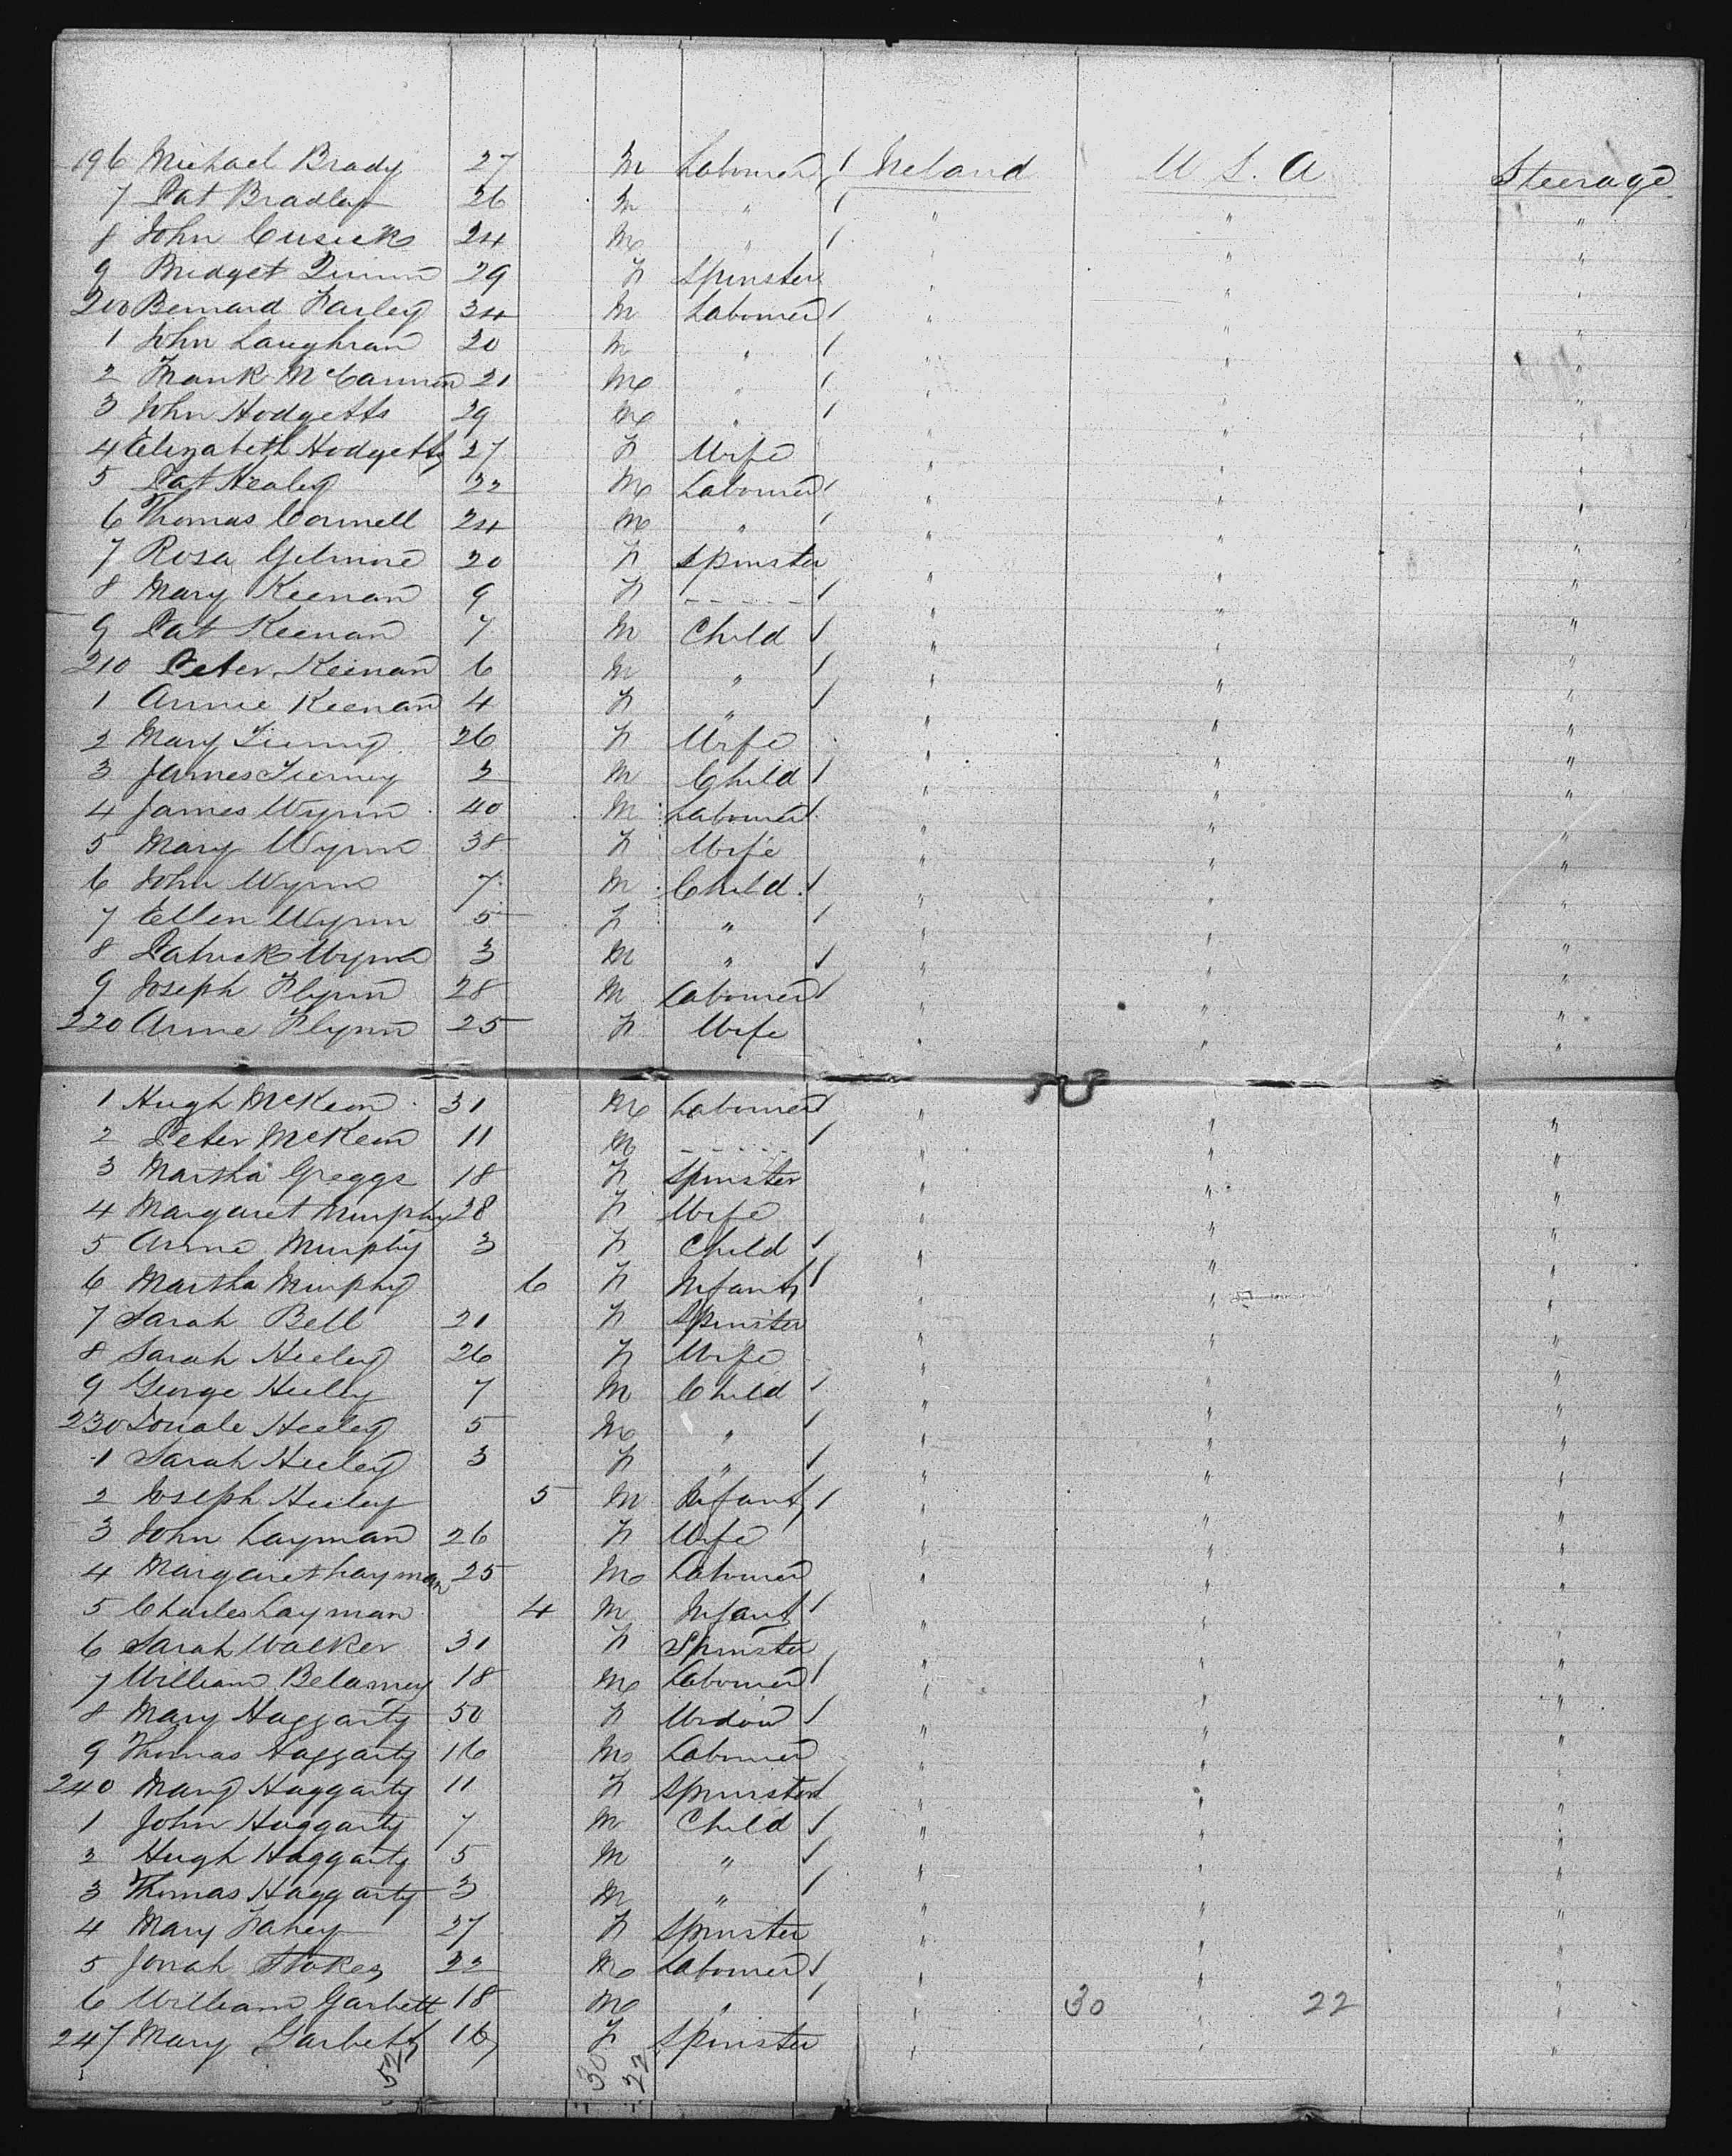 196 Michael Brady 27 M Labourer Ireland U.S.A Steerage
7 Pat Bradley 26 M " " " "
8 John Cusick 24 M " " " "
9 Bridget Quinn 29 F Spinster " " "
200 Bernard Farley 34 M Labourer " " "
1 John Laughran 20 M " " " "
2 Frank McCannon 21 M " " " "
3 John Hodgetts 29 M " " " "
4 Elizabeth Hodgetts 27 F Wife " " "
5 Pat Healey 22 M Labourer " " "
6 Thomas Connell 24 M " " " "
7 Rosa Gilmore 20 F Spinster " " "
8 Mary Keenan 9 F ----- " " "
9 Pat Keenan 7 M Child " " "
210 Peter Keenan 6 M " " " "
1 Annie Keenan 4 F " " " "
2 Mary Tierney 26 F Wife " " "
3 James Tierney 2 M Child " " "
4 James Wynn 40 M Labourer " " "
5 Mary Wynn 38 F Wife " " "
6 John Wynn 7 M Child " " "
7 Ellen Wynn 5 F " " " "
8 Patrick Wynn 3 M " " " "
9 Joseph Flynn 28 M Labourer " " "
220 Anne Flynn 25 F Wife " " "
1 Hugh McKeon 31 M Labourer " " "
2 Peter McKeon 11 M ----- " " "
3 Martha Greggs 18 F Spinster " " "
4 Margaret Murphy 28 F Wife " " "
5 Anne Murphy 3 F Child " " "
6 Martha Murphy 6 F Infant " " "
7 Sarah Bell 21 F Spinster " " "
8 Sarah Heeley 26 F Wife " " "
9 George Heeley 7 M Child " " "
230 Heeley 5 M " " " "
1 Sarah Heeley 3 F " " " "
2 Joseph Heeley 5 M Infant " " "
3 John Layman 26 F Wife " " "
4 Margaret Layman 25 M Labourer " " "
5 Charles Layman 4 M Infant " " "
6 Sarah Walker 31 F Spinster " " "
7 William Belamey 18 M Labourer " " "
8 Mary Haggarty 50 F Widow " " "
9 Thomas Haggarty 16 M Labourer " " "
240 Mary Haggarty 11 F Spinster " " "
1 John Haggarty 7 M Child " " "
2 Hugh Haggarty 5 M " " " "
3 Thomas Haggarty 3 M " " " "
4 Mary Fahey 27 F Spinster " " "
5 Jonah Stokes 22 M Labourer " " "
6 William Garbett 18 M " " 30 " 22 "
247 Mary Garbett 16 F Spinster " " "
52 30 22